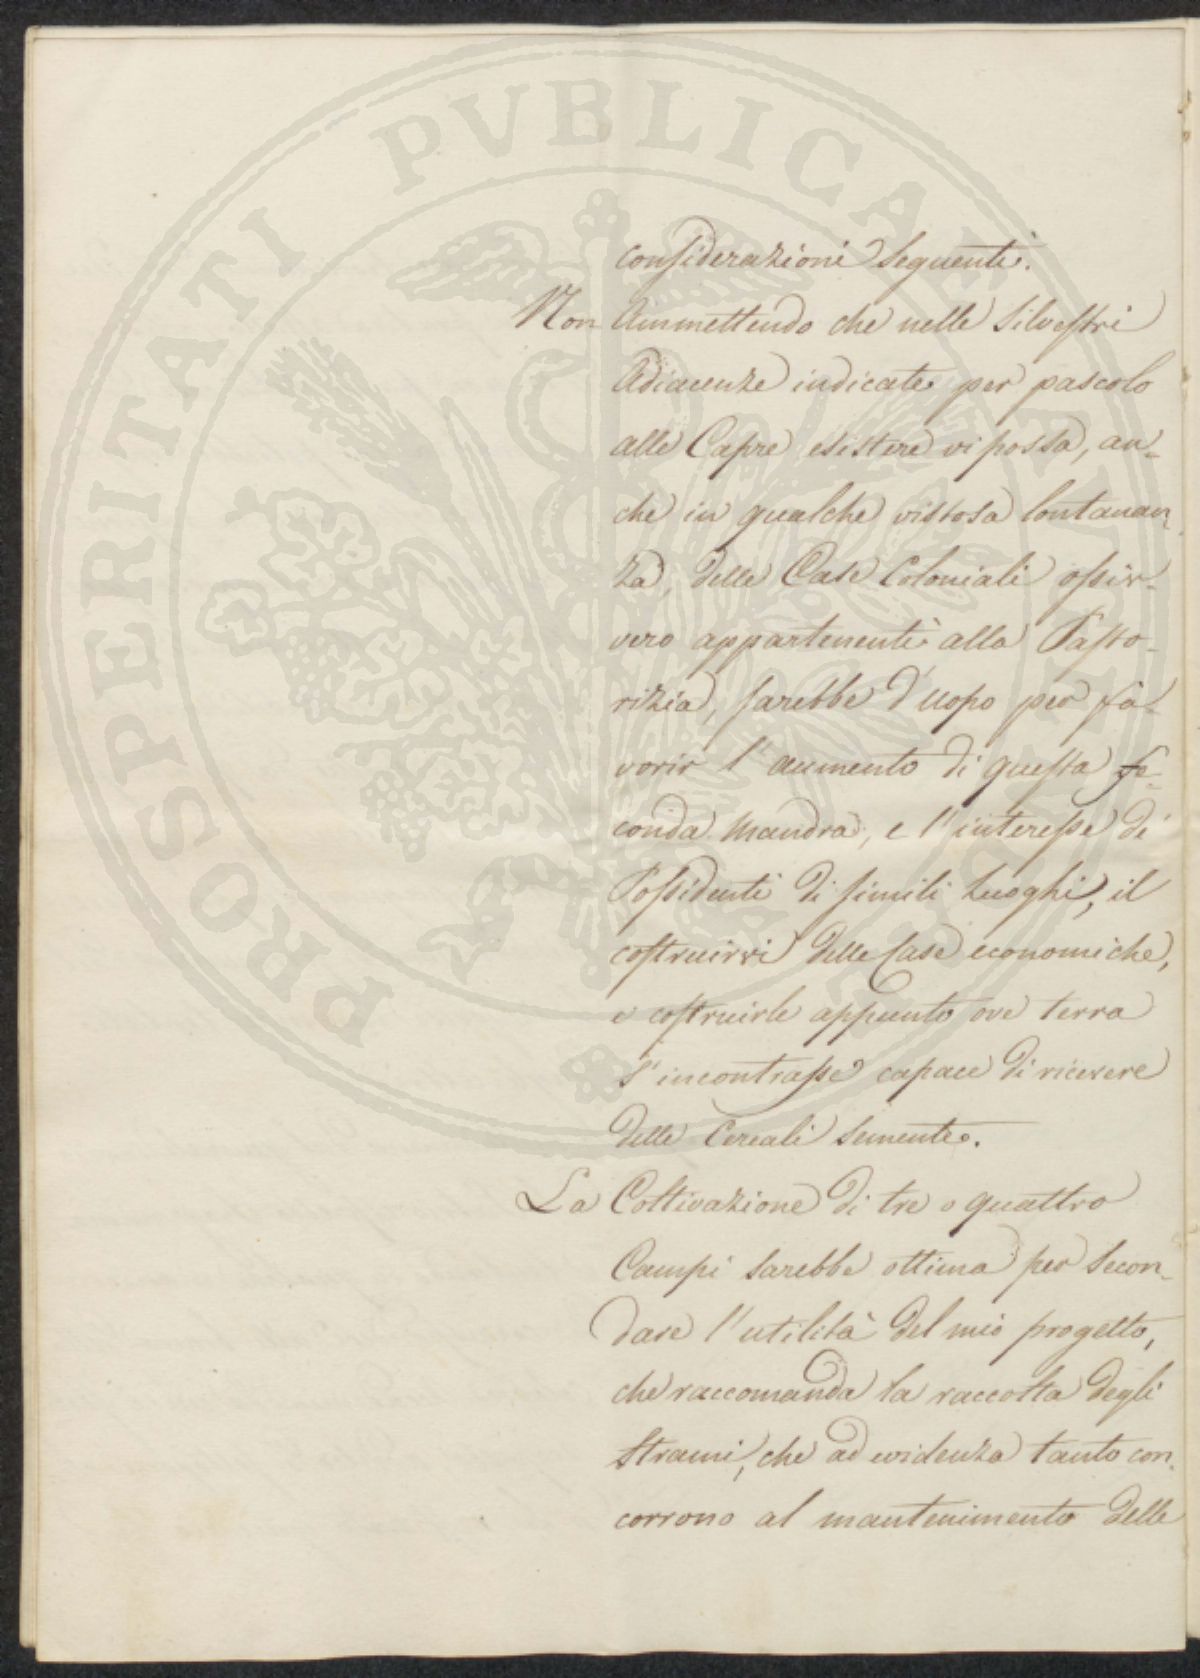 considerazioni seguenti.
Non Ammettendo che nelle Silvestri
Adiacenze indicate per pascolo
alle Capre esistere vi possa, an-
che in qualche vistosa lontanan-
za, delle Case Coloniali ossiv-
vero appartenenti alla Pasto-
rizia, sarebbe d'uopo per fa-
vorir l'aumento di questa fe-
conda Mandra, e l'interesse de'
Possidenti di simili Luoghi, il
costruirvi delle Case economiche,
e costruirle appunto ove terra
s'incontrasse capace di ricevere
delle Cereali Semente.
La Coltivazione di tre o quattro
Campi sarebbe ottima per secon-
dare l'utilità del mio progetto,
che raccomanda la raccolta degli
Strami, che ad evidenza tanto con-
corrono al mantenimento delle
PROSPERITATI PVBLICAE